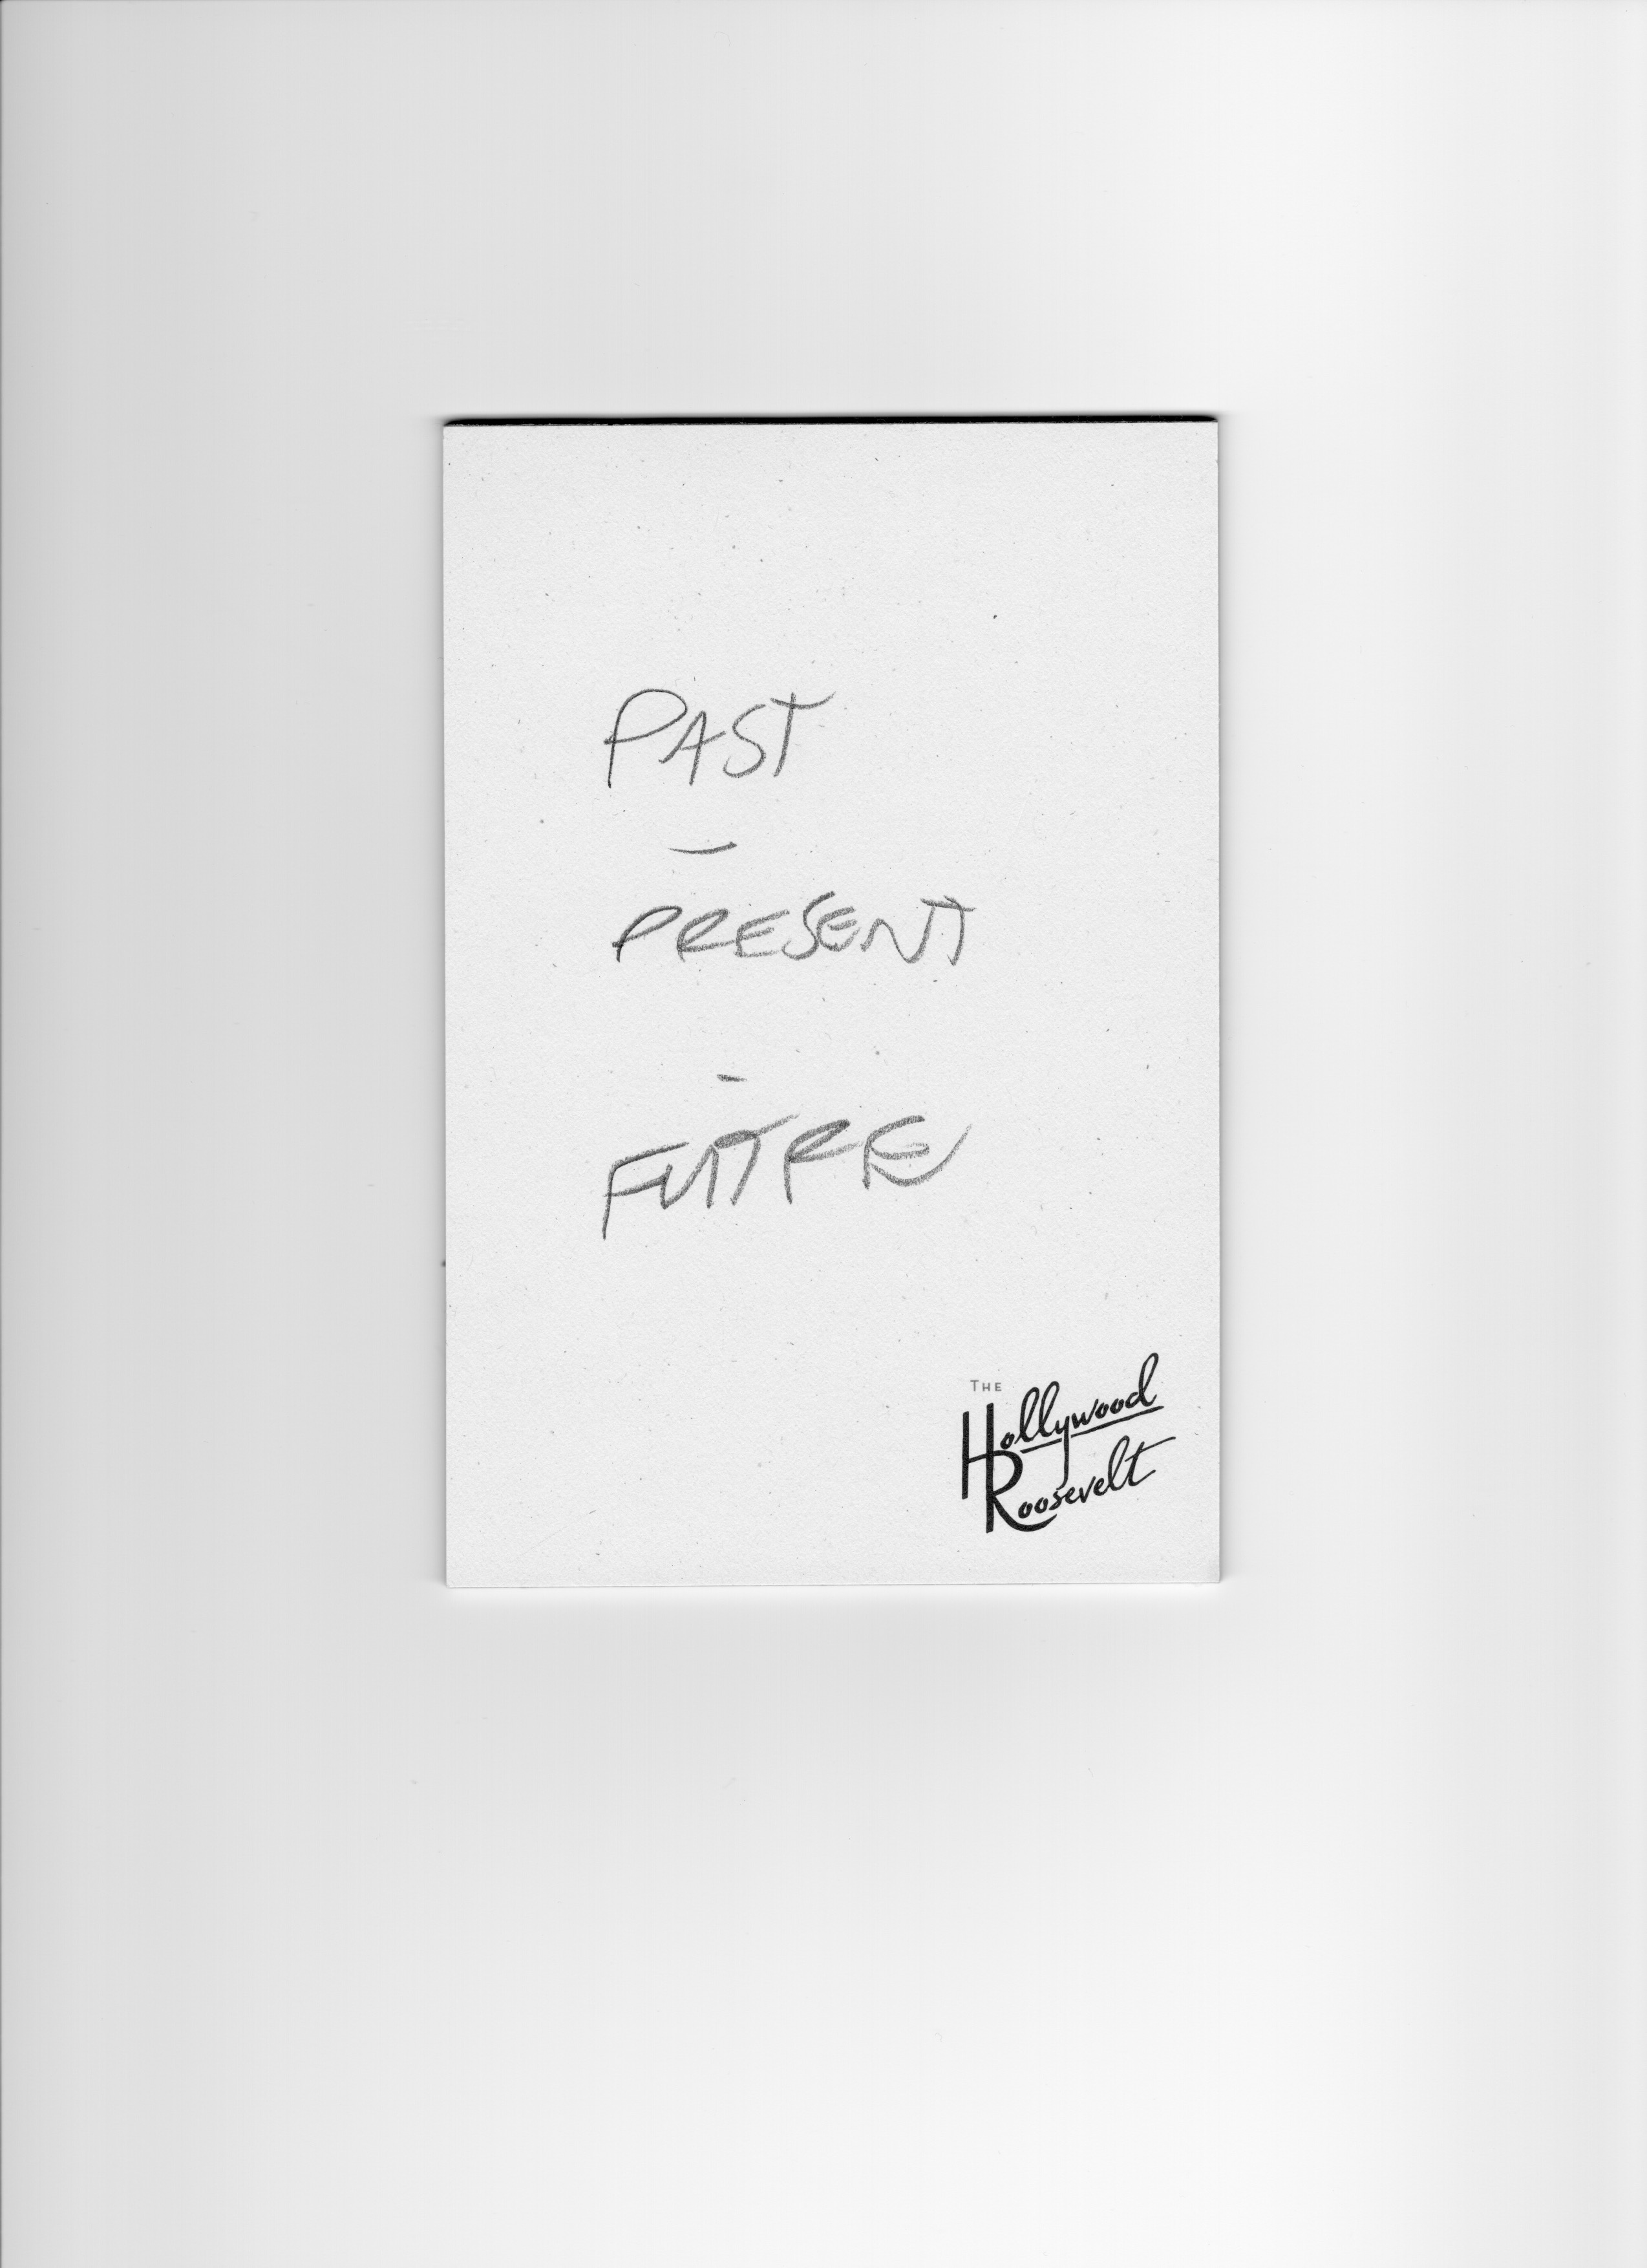 PAST
–
PRESENT
-
FUTRE
THE
Hollywood
Roosevelt